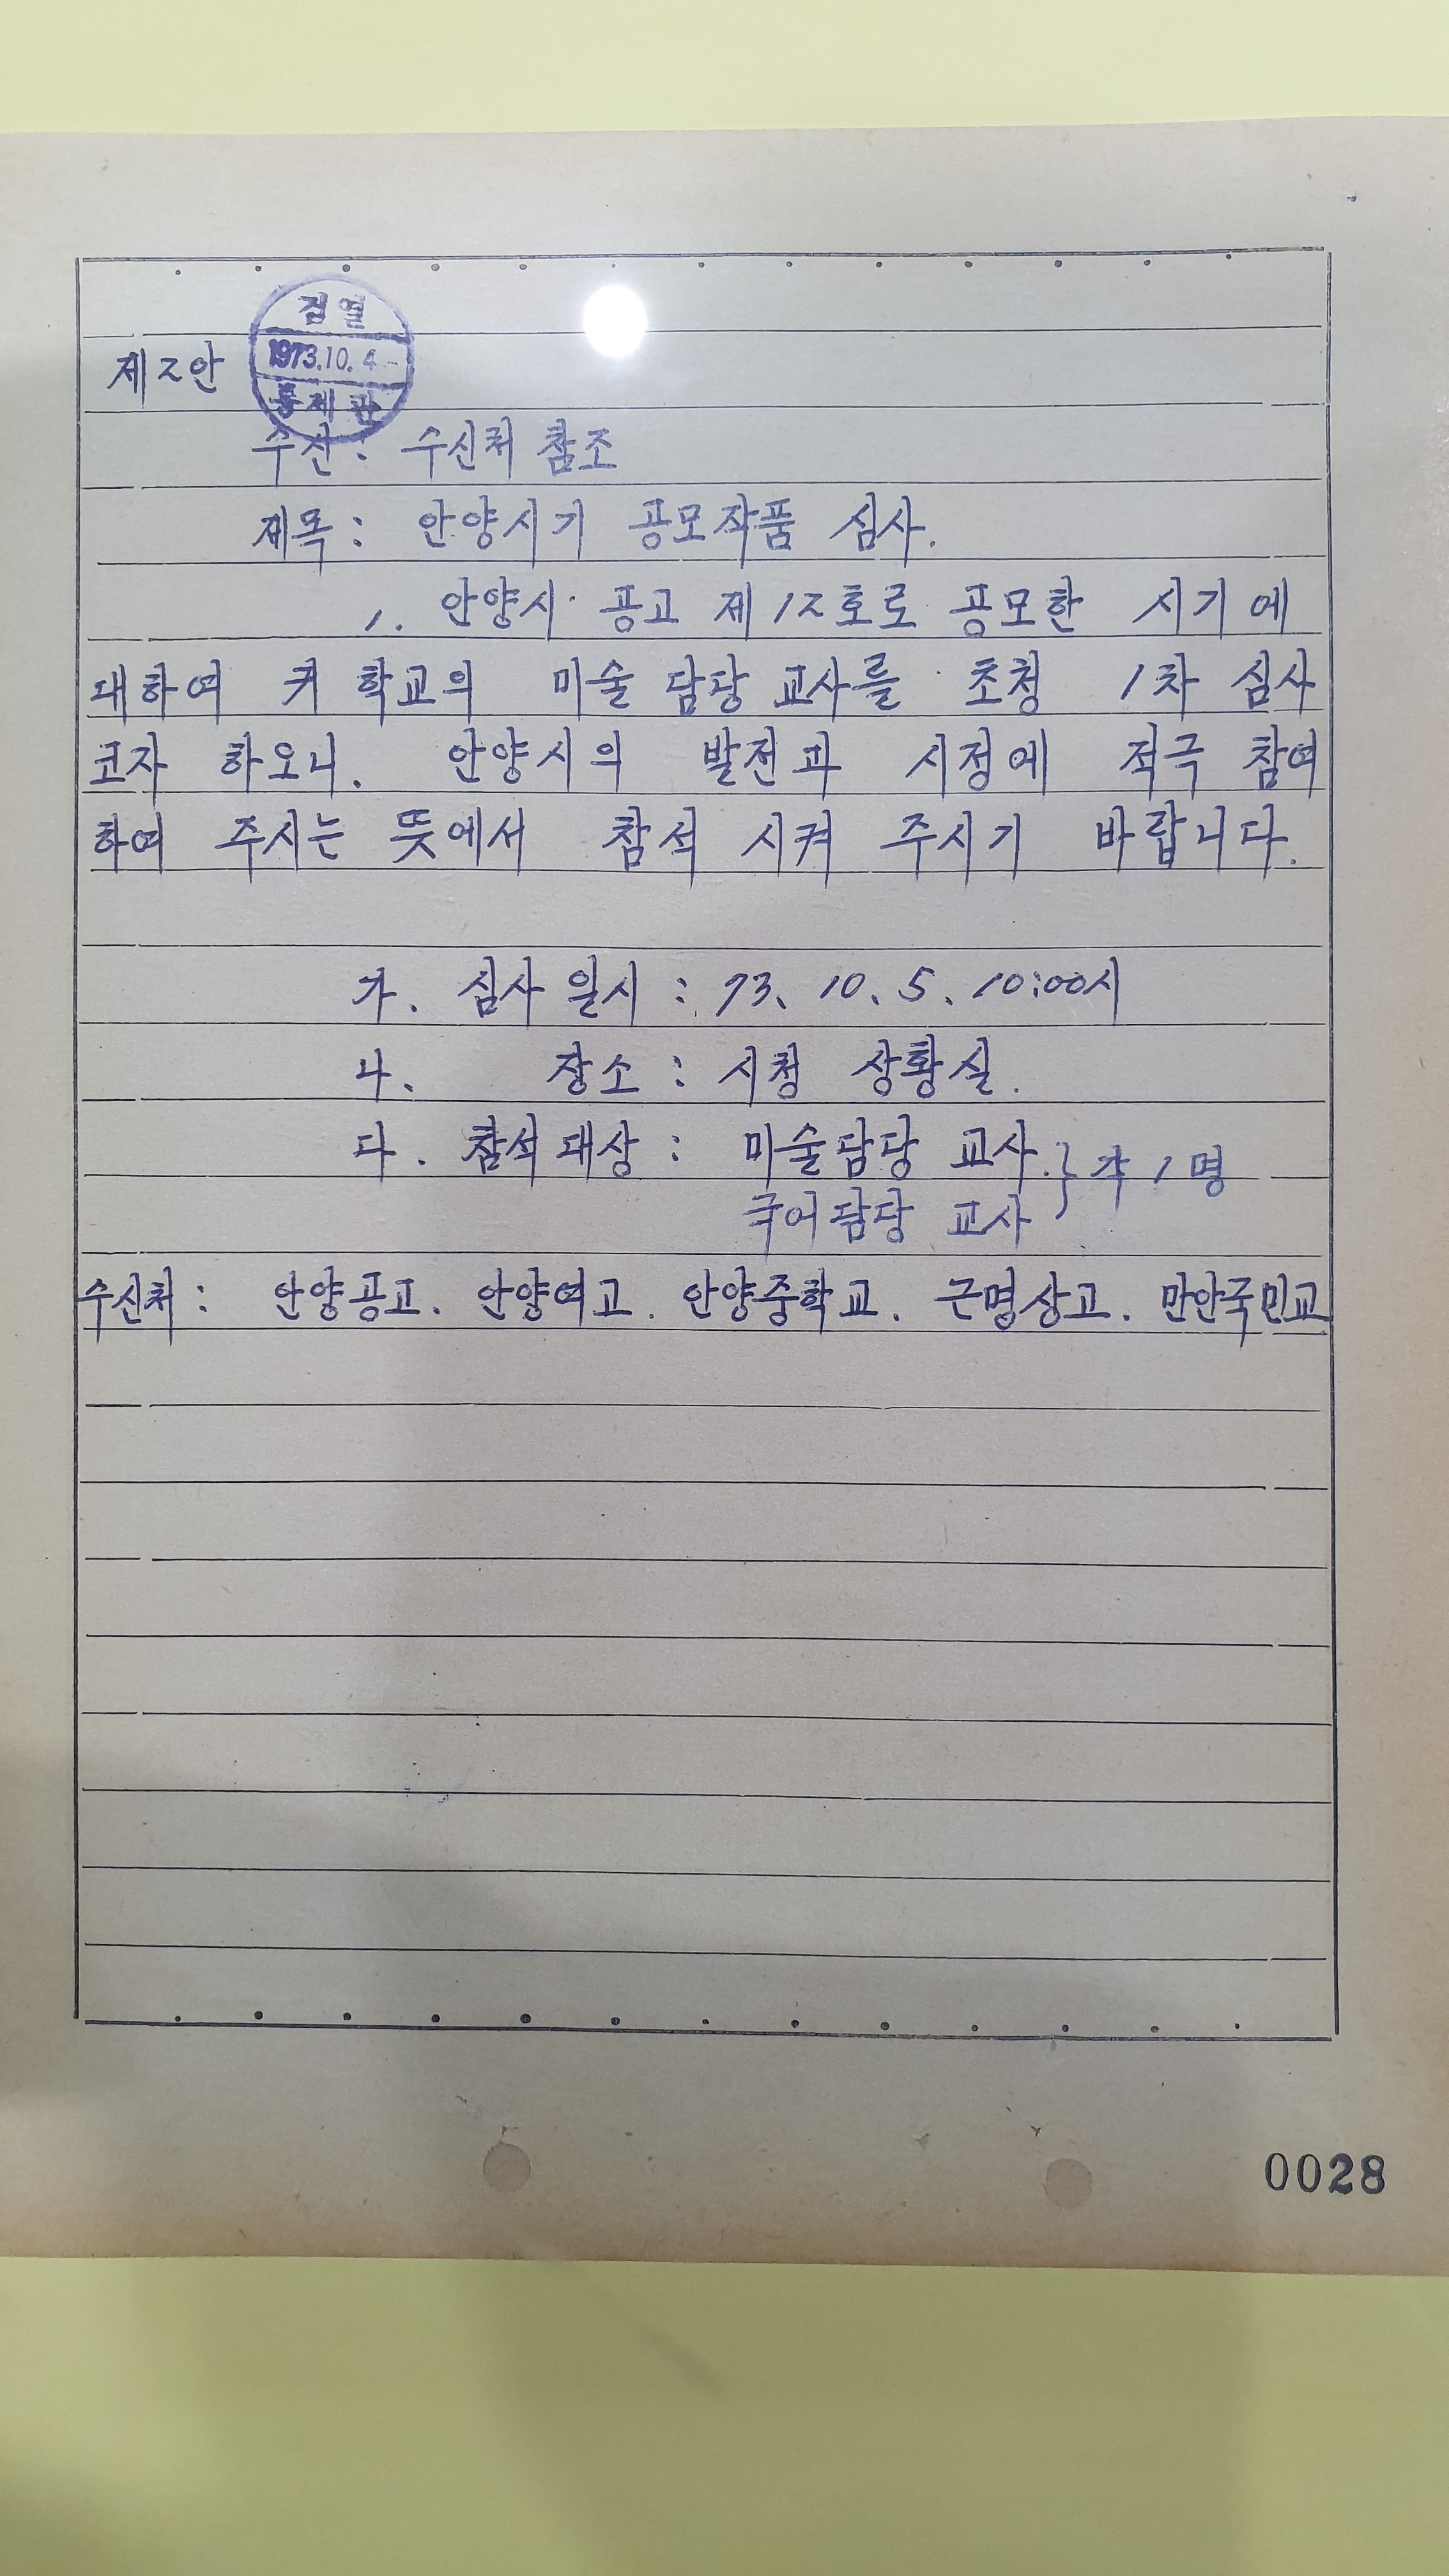 검열
1973.10.4
통제관
제2안
수신: 수신처 참조
제목: 안양시기 공모작품 심사.
1. 안양시 공고 제12호로 공모한 시기에
대하여 귀 학교의 미술 담당 교사를 초청 1차 심사
코자 하오니. 안양시의 발전과 시정에 적극 참여
하여 주시는 뜻에서 참석 시켜 주시기 바랍니다.
가. 심사 일시 : 73. 10. 5. 10:00시
나. 장소 : 시청 상황실.
다. 참석대상 : 미술담당 교사. } 각 1명
국어담당 교사
수신처 : 안양공고. 안양여고. 안양중학교. 근명상고. 만안국민교
0028